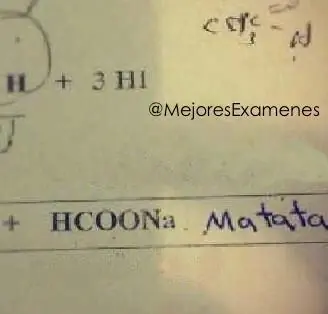 H + 3 HI
@MejoresExamenes
+ HCOONa Matata